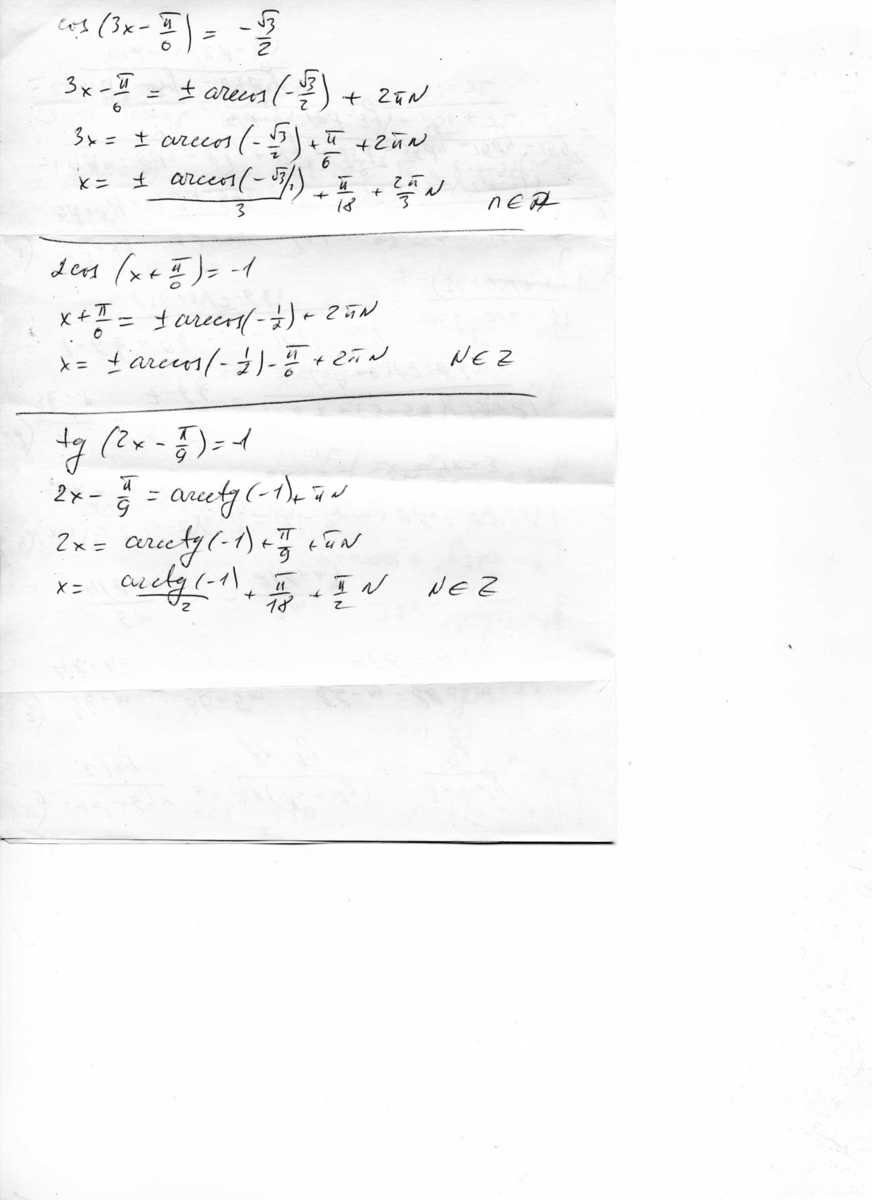 cos (3x - π/6) = -√3/2
3x - π/6 = ± arccos(-√3/2) + 2πN
3x = ± arccos(-√3/2) + π/6 + 2πN
x = ± arccos(-√3/2)/3 + π/18 + 2π/3 N n ∈ Z
2cos (x + π/6) = -1
x + π/6 = ± arccos(-1/2) + 2πN
x = ± arccos(-1/2) - π/6 + 2πN N ∈ Z
tg (2x - π/9) = -1
2x - π/9 = arctg(-1) + πN
2x = arctg(-1) + π/9 + πN
x = arctg(-1)/2 + π/18 + π/2 N N ∈ Z